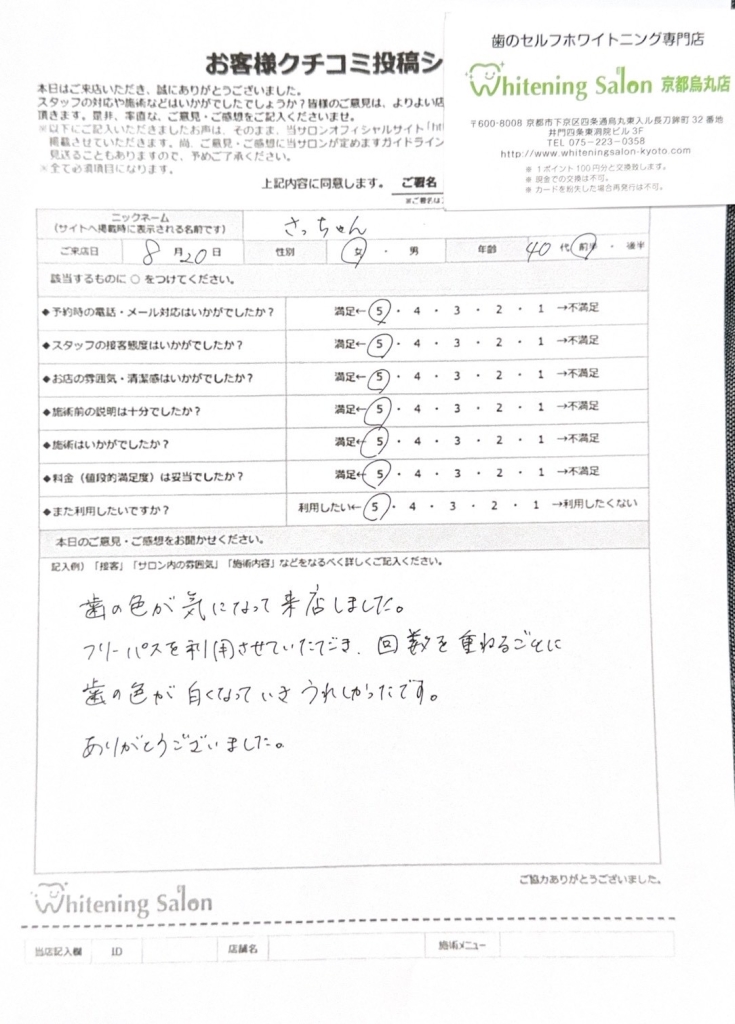 お客様クチコミ投稿シ
本日はご来店いただき、誠にありがとうございました。
スタッフの対応や施術などはいかがでしたでしょうか？皆様のご意見は、よりよい店
頂きます。是非、率直な、ご意見・ご感想をご記入くださいませ。
※以下にご記入いただきましたお声は、そのまま、当サロンオフィシャルサイト「htt
掲載させていただきます。尚、ご意見・ご感想に当サロンが定めますガイドライン
見送ることもありますので、予めご了承ください。
※全て必須項目になります。
上記内容に同意します。 ご署名
※ご署名は
歯のセルフホワイトニング専門店
Whitening Salon 京都烏丸店
〒600-8008 京都市下京区四条通烏丸東入ル長刀鉾町 32 番地
井門四条東洞院ビル 3F
TEL 075-223-0358
http://www.whiteningsalon-kyoto.com
※ 1ポイント100円分と交換致します。
※ 現金での交換は不可。
※ カードを紛失した場合再発行は不可。
ニックネーム
（サイトへ掲載時に表示される名前です） さっちゃん
ご来店日 8月20日 性別 女 ・ 男 年齢 40代 前半 ・ 後半
該当するものに ○ をつけてください。
◆予約時の電話・メール対応はいかがでしたか？ 満足← 5 ・ 4 ・ 3 ・ 2 ・ 1 →不満足
◆スタッフの接客態度はいかがでしたか？ 満足← 5 ・ 4 ・ 3 ・ 2 ・ 1 →不満足
◆お店の雰囲気・清潔感はいかがでしたか？ 満足← 5 ・ 4 ・ 3 ・ 2 ・ 1 →不満足
◆施術前の説明は十分でしたか？ 満足← 5 ・ 4 ・ 3 ・ 2 ・ 1 →不満足
◆施術はいかがでしたか？ 満足← 5 ・ 4 ・ 3 ・ 2 ・ 1 →不満足
◆料金（値段的満足度）は妥当でしたか？ 満足← 5 ・ 4 ・ 3 ・ 2 ・ 1 →不満足
◆また利用したいですか？ 利用したい← 5 ・ 4 ・ 3 ・ 2 ・ 1 →利用したくない
本日のご意見・ご感想をお聞かせください。
記入例）「接客」「サロン内の雰囲気」「施術内容」などをなるべく詳しくご記入ください。
歯の色が気になって来店しました。
フリーパスを利用させていただき、回数を重ねるごとに
歯の色が白くなっていきうれしかったです。
ありがとうございました。
ご協力ありがとうございました。
Whitening Salon
当店記入欄 ID 店舗名 施術メニュー